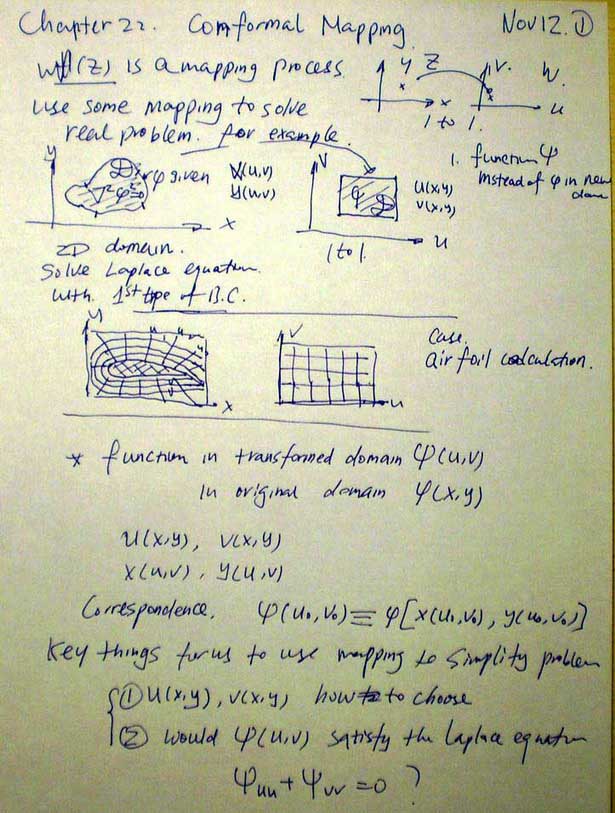 Chapter 22. Conformal Mapping Nov 12. ①
w=f(z) is a mapping process.
y z x v. W. u
1 to 1.
use some mapping to solve
real problem. for example.
1. function ψ
instead of φ in new
y D φ given ∇²φ=0 x
x(u,v)
y(u,v)
V ψ D u
u(x,y)
v(x,y)
1 to 1.
2D domain.
Solve Laplace equation.
with 1st type of B.C.
y u v x
v u
case.
air foil calculation.
* function in transformed domain ψ(u,v)
in original domain φ(x,y)
u(x,y), v(x,y)
x(u,v), y(u,v)
Correspondence. ψ(u₀,v₀) ≡ φ[x(u₀,v₀), y(u₀,v₀)]
Key things for us to use mapping to simplify problem
① u(x,y), v(x,y) how to choose
② would ψ(u,v) satisfy the Laplace equation
ψuu + ψvv = 0 ?